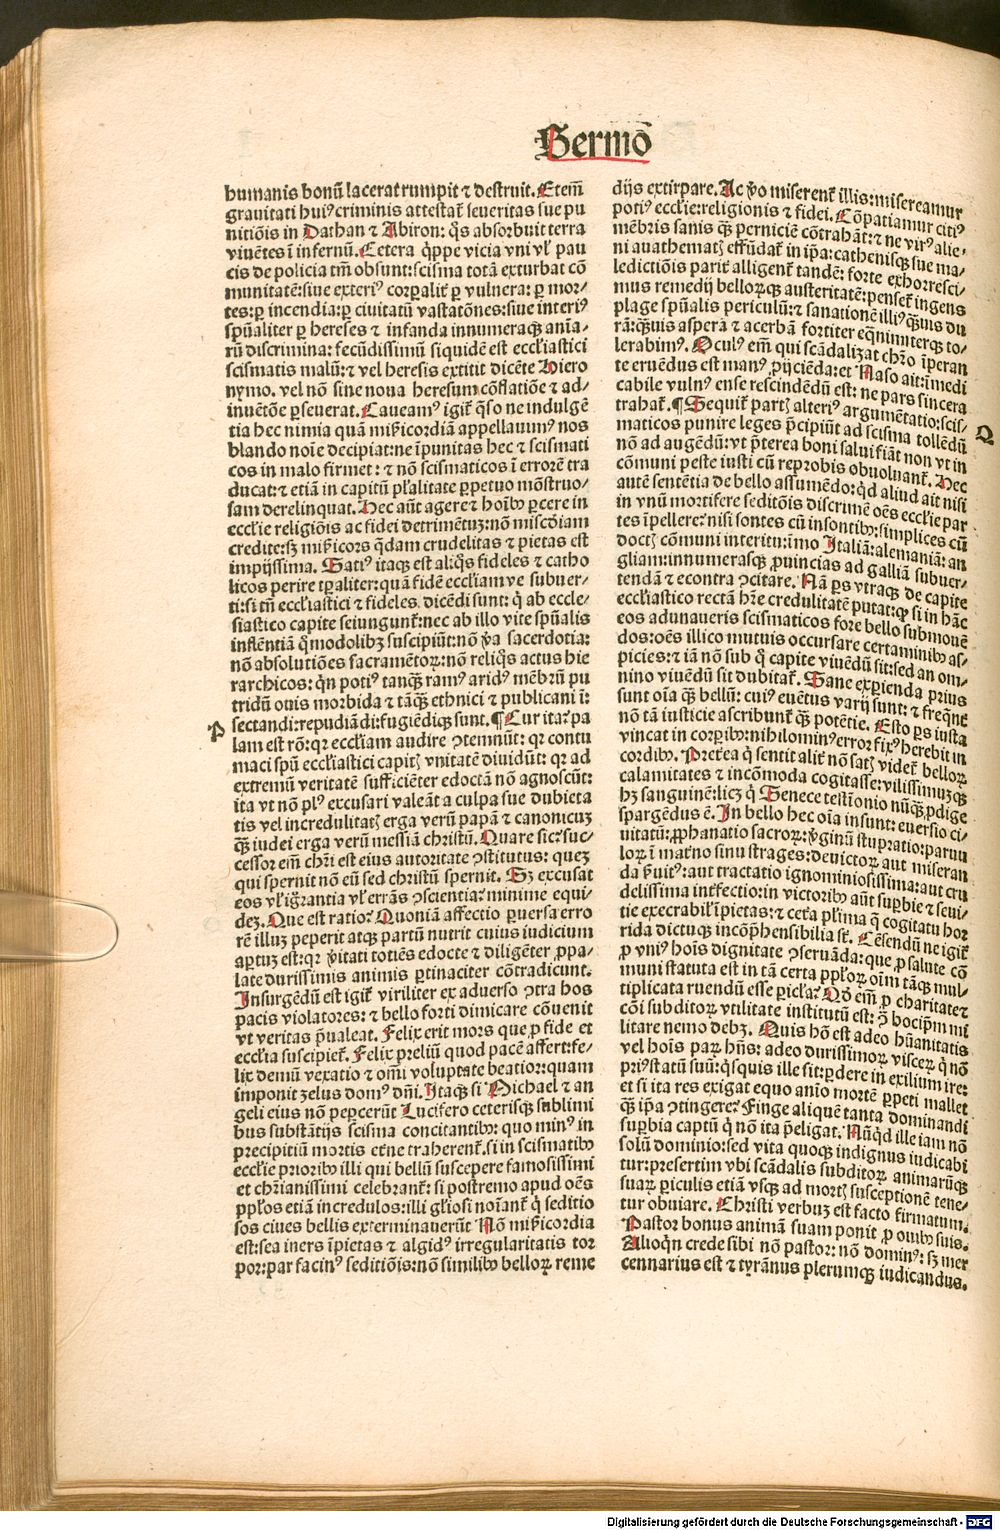 Sermo̅
humanis bonū lacerat rumpit ⁊ destruit. Etem̄
grauitati huiꝰ criminis attestat̉ seueritas siue pu
nitiōis in Dathan ⁊ Abiron: q̄s absorbuit terra
viuētes ī infernū. Cetera q̄ppe vicia vni vl̓ pau
cis de policia tm̄ obsunt: scisma totā exturbat cō
munitatē: siue exteriꝰ corꝑalit̉ ꝑ vulnera: ꝑ mor⸗
tes: ꝑ incendia: ꝑ ciuitatū vastatōnes: siue interiꝰ
spūaliter ꝑ hereses ⁊ infanda innumeraqꝫ anīa⸗
rū discrimina: fecūdissimū siquidē est eccl̓iastici
scismatis malū: ⁊ vel heresis extitit dicēte Hiero
nymo. vel nō sine noua heresum cōflatiōe ⁊ ad⸗
inuētōe ꝑseuerat. Caueamꝰ igit̉ q̄so ne indulgē
tia hec nimia quā mīs̓icordiā appellauimꝰ nos
blando noīe decipiat: ne īpunitas hec ⁊ scismati
cos in malo firmet: ⁊ nō scismaticos ī errorē tra
ducat: ⁊ etiā in capitū pl̓alitate ꝑpetuo mōstruo⸗
sam derelinquat. Hec aūt agere ⁊ hoībꝰ ꝑcere in
eccl̓ie religiōis ac fidei detrimētuꝫ: nō misc̓diam
credite: sꝫ mīs̓icors q̄dam crudelitas ⁊ pietas est
impijssima. Satiꝰ itaqꝫ est aliq̄s fideles ⁊ catho
licos perire tꝑaliter: quā fidē eccl̓iamve subuer⸗
ti: si tn̄ eccl̓iastici ⁊ fideles dicēdi sunt: q̇ ab eccle⸗
siastico capite seiungunt̉: nec ab illo vite spūalis
inflentiā q̊modolibꝫ suscipiūt: nō v̓a sacerdotia:
nō absolutiōes sacramētoꝝ: nō reliq̄s actus hie
rarchicos: q̄n potiꝰ tanqꝫ̄ ramꝰ aridꝰ mēbrū pu
tridū ouis morbida ⁊ tāqꝫ̄ ethnici ⁊ publicani ī:
P
sectandi: repudiādi: fugiēdiqꝫ sunt. ¶ Cur ita? pa
lam est rō: qr eccl̓iam audire ꝯtemnūt: qr contu
maci spū eccl̓iastici capitꝭ vnitatē diuidūt: qr ad
extremū veritatē sufficiēter edoctā nō agnoscūt:
ita vt nō plꝰ excusari valeāt a culpa sue dubieta
tis vel incredulitatꝭ erga verū papā ⁊ canonicuꝫ
qꝫ̄ iudei erga verū messiā christū. Quare sic? suc⸗
cessor em̄ chr̄i est eius autoritate ꝯstitutus: queꝫ
qui spernit nō eū sed christū spernit. Sꝫ excusat
eos vl̓ igrantia vl̓ errās ꝯscientia? minime equi⸗
deꝫ. Que est ratio? Quoniā affectio ꝑuersa erro
rē illuꝫ peperit atqꝫ partū nutrit cuius iudicium
aꝑtuꝫ est: qr v̓itati totiēs edocte ⁊ diligēter ꝓpa⸗
late durissimis animis ꝑtinaciter cōtradicunt.
Insurgēdū est igit̉ viriliter ex aduerso ꝯtra hos
pacis violatores: ⁊ bello forti dimicare cōuenit
vt veritas p̄ualeat. Felix erit mors que ꝓ fide et
eccl̓ia suscipiet̉. Felix preliū quod pacē affert: fe⸗
lix demū vexatio ⁊ om̄i voluptate beatior: quam
imponit zelus domꝰ dn̄i. Itaqꝫ si Michael ⁊ an
geli eius nō peꝑcerūt Lucifero ceterisqꝫ sublimi
bus substātijs scisma concitantibꝰ: quo minꝰ in
precipitiū mortis etne traherent̉. si in scismatibꝰ
eccl̓ie prioribꝰ illi qui bellū suscepere famosissimi
et chr̄ianissimi celebrant̉: si postremo apud oēs
ppl̓os etiā incredulos: illi gl̓iosi noīant̉ q̇ seditio
sos ciues bellis exterminauerūt Nō mīs̓icordia
est: sea iners īpietas ⁊ algidꝰ irregularitatis tor
por: par facinꝰ seditiōis: nō similibꝰ belloꝝ reme
dijs extirpare. Ac v̓o miserent̉ illis: misereamur
potiꝰ eccl̓ie: religionis ⁊ fidei. Cōpatiamur citiꝰ
mēbris sanis qꝫ̄ perniciē cōtrahāt: ⁊ ne virꝰ alie⸗
ni anathematꝭ effūdat̉ in ip̄a: cathenisqꝫ sue ma⸗
ledictiōis parit̉ alligent̉ tandē: forte exhorresci⸗
mus remedij belloꝝqꝫ austeritatē: penset̉ ingens
plage spūalis periculū: ⁊ sanationē illiꝰ qꝫ̄uis du
rā: qꝫ̄uis asperā ⁊ acerbā fortiter eq̄nimiterqꝫ to⸗
lerabimꝰ. Oculꝰ em̄ qui scādalizat chr̄o īperan
te eruēdus est manꝰ ꝓijciēda: et Naso ait: īmedi
cabile vulnꝰ ense rescindēdū est: ne pars sincera
trahat̉. ¶ Sequit̉ partꝭ alteriꝰ argumētatio: scis⸗
Q
maticos punire leges p̄cipiūt ad scisma tollēdū
nō ad augēdū: vt p̄terea boni salui fiāt non vt in
cōmuni peste iusti cū reprobis obuoluant̉. Hec
autē sentētia de bello assumēdo: qd aliud ait nisi
in vnū mortifere seditōis discrimē oēs eccl̓ie par
tes īpellere? nisi sontes cū insontibꝰ: simplices cū
doctꝭ cōmuni interitu: īmo Italiā: alemaniā: an
gliam: innumerasqꝫ ꝓuincias ad galliā subuer⸗
tendā ⁊ econtra ꝯcitare. Nā ꝑs vtraqꝫ de capite
ecclesiastico rectā hr̄e credulitatē putat: qꝫ si in hāc
eos adunaueris scismaticos fore bello submouē
dos: oēs illico mutuis occursare certaminibꝰ as⸗
picies: ⁊ iā nō sub q̊ capite viuēdū sit: sed an om⸗
nino viuēdū sit dubitat̉. Sane exꝑienda prius
sunt oīa qꝫ̄ bellū: cuiꝰ euētus varij sunt: ⁊ freq̄nt̉
nō tā iusticie ascribunt̉ qꝫ̄ potētie. Esto ꝑs iusta
vincat in corꝑibꝰ: nihilominꝰ error fixꝰ herebit in
cordibꝰ. Preterea q̇ sentit alit̉ nō satꝭ videt̉ belloꝝ
calamitates ⁊ incōmoda cogitasse: vilissimuꝫqꝫ
hꝫ sanguinē: licꝫ q̇ Senece testīonio nūqꝫ̄ ꝓdige
spargēdus ē. In bello hec oīa insunt: euersio ci⸗
uitatū: ꝓphanatio sacroꝝ: v̓ginū stupratio: paruu
loꝝ ī mat̉no sinu strages: deuictoꝝ aut miseran
da s̓uitꝰ: aut tractatio ignominiosissima: aut cru
delissima int̉fectio: in victoribꝰ aūt suꝑbie ⁊ seui⸗
tie execrabil̓ īpietas: ⁊ cet̉a pl̓ima q̄ cogitatu hor
rida dictuqꝫ incōp̄hensibilia sūt. Cēsendū ne igit̉
ꝓ vniꝰ hoīs dignitate ꝯseruāda: que ꝓ salute cō
muni statuta est in tā certa ppl̓oꝝ oīm tāqꝫ mul⸗
tiplicata ruendū esse pericl̓a? Qd̓ em̄ ꝓ charitate ⁊
cōi subditoꝝ vtilitate institutū est: ꝯ̄ hoc ip̄m mi
litare nemo debꝫ. Quis hō est adeo hūanitatis
vel hoīs paꝝ hn̄s: adeo durissimoꝝ visceꝝ q̇ nō
priꝰ statū suū: q̄squis ille sit: ꝑdere in exilium ire:
et si ita res exigat equo anīo mortē ꝑpeti mallet
qꝫ̄ ip̄a ꝯtingere? Finge aliquē tanta dominandi
suꝑbia captū q̇ nō ita p̄eligat. Nūqd ille iam nō
solū dominio: sed vita quoqꝫ indignus iudicabi
tur: presertim vbi scādalis subditoꝝ animarūqꝫ
suaꝝ ꝑiculis etiā vsqꝫ ad mortꝭ susceptionē tene⸗
tur obuiare. Christi verbuꝫ est facto firmatum.
Pastor bonus animā suam ponit ꝓ ouibꝰ suis.
Alioqn̄ crede sibi nō pastor: nō dominꝰ: sꝫ mer
cennarius est ⁊ tyrānus plerumqꝫ iudicandus.
Digitalisierung gefördert durch die Deutsche Forschungsgemeinschaft - DFG